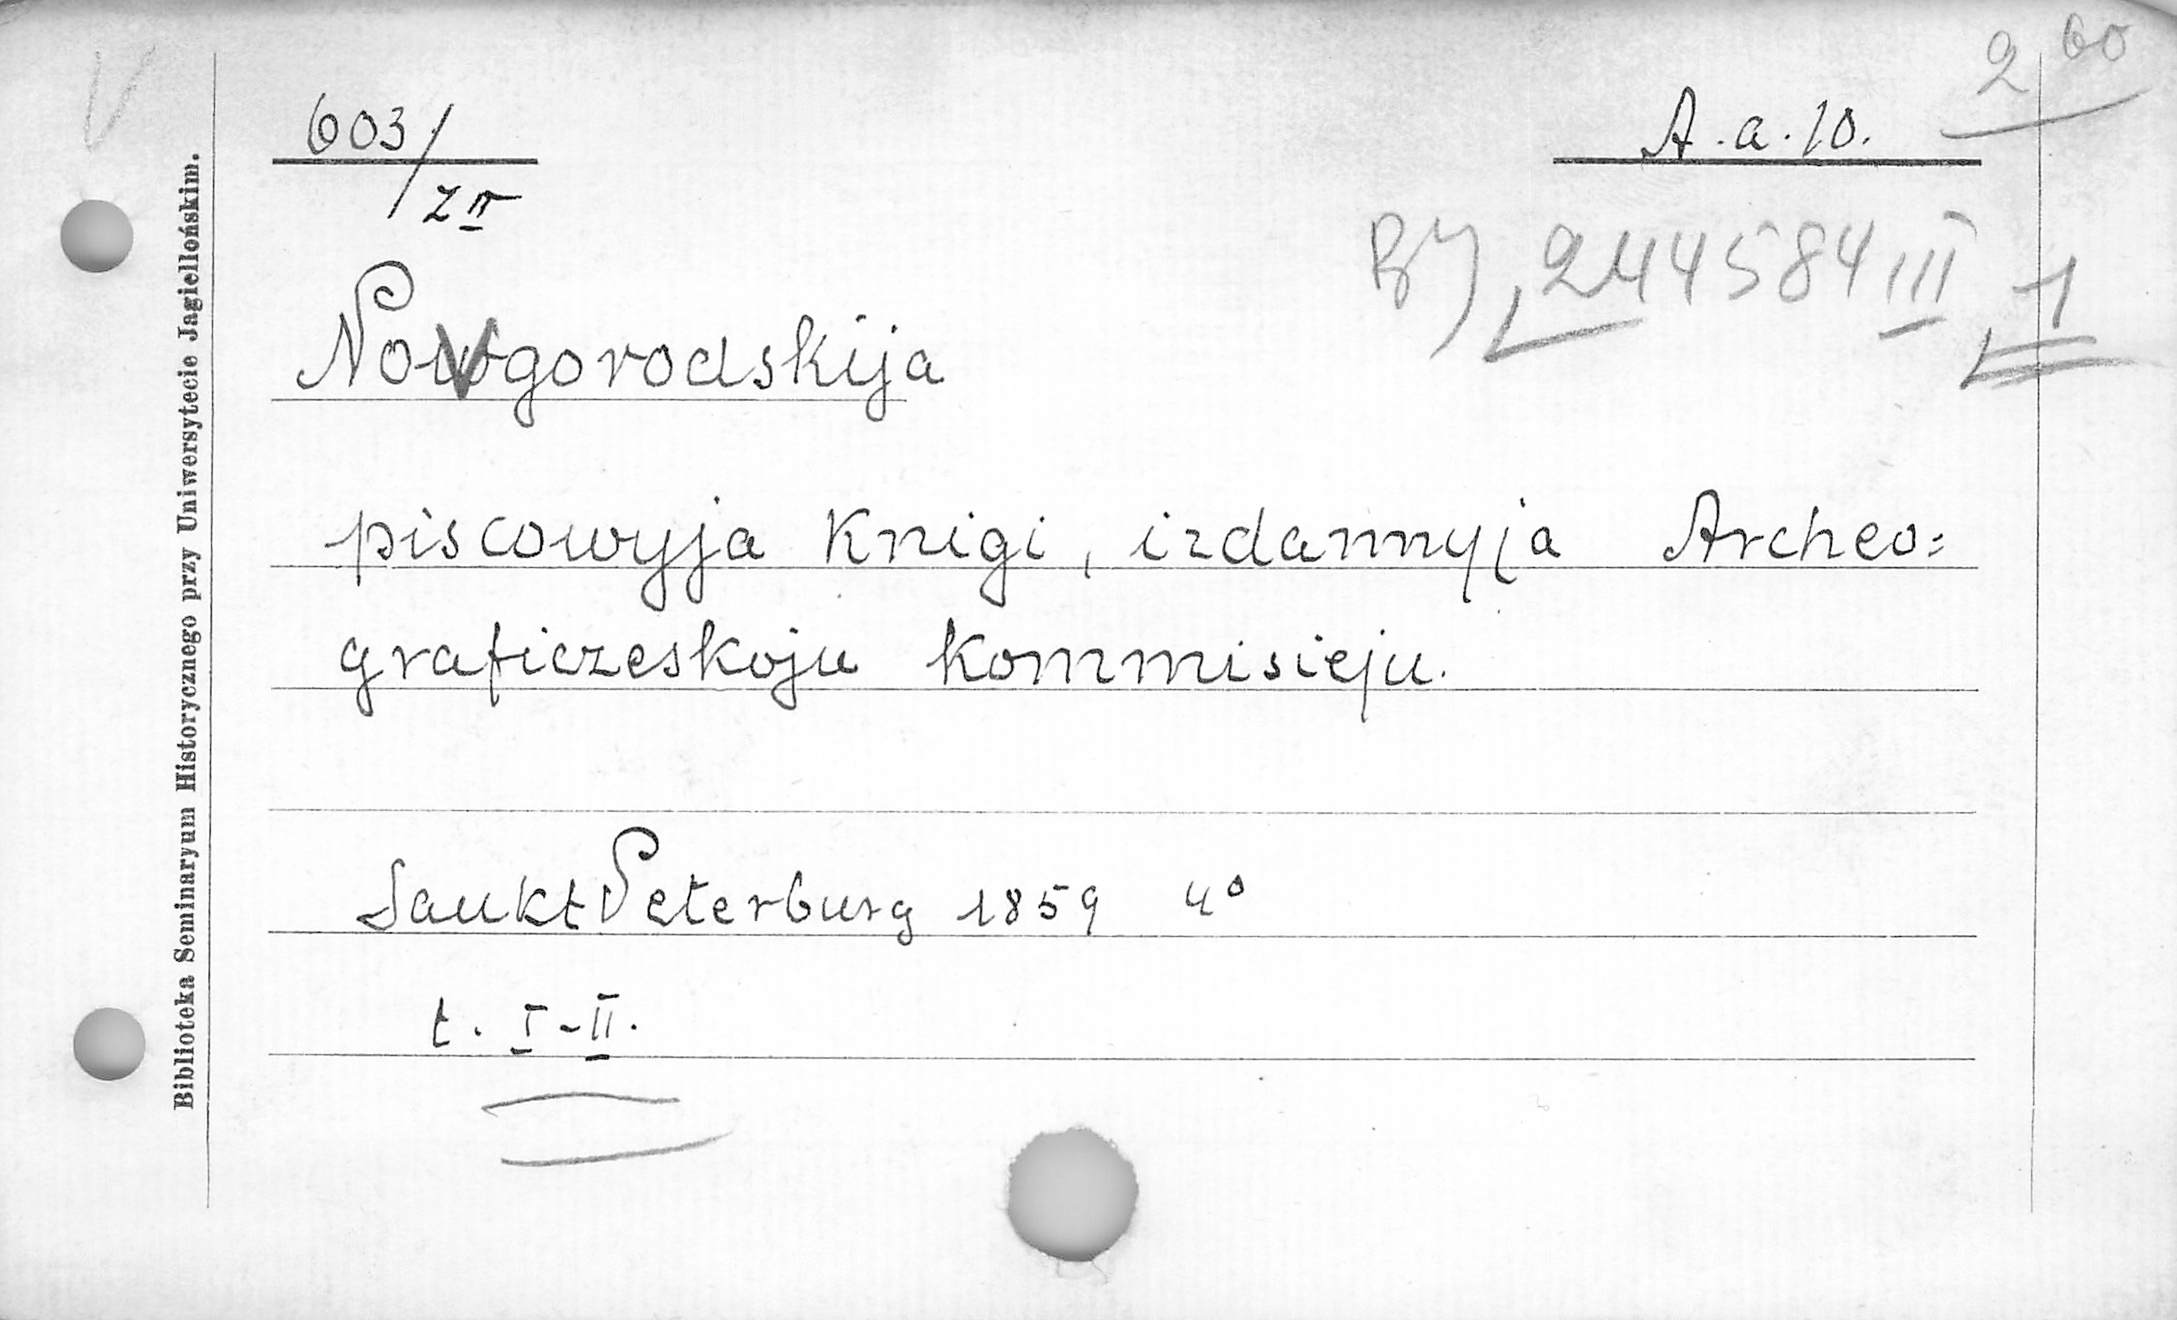 V
2 60
603/zII
A.a.10.
BJ 244584 III 1
Novgorodskija
piscowyja Knigi, izdannyja Archeo=
graficzeskoju Kommisieju.
Sankt Peterburg 1859 4°
t. I-II.
Biblioteka Seminaryum Historycznego przy Uniwersytecie Jagiellońskim.